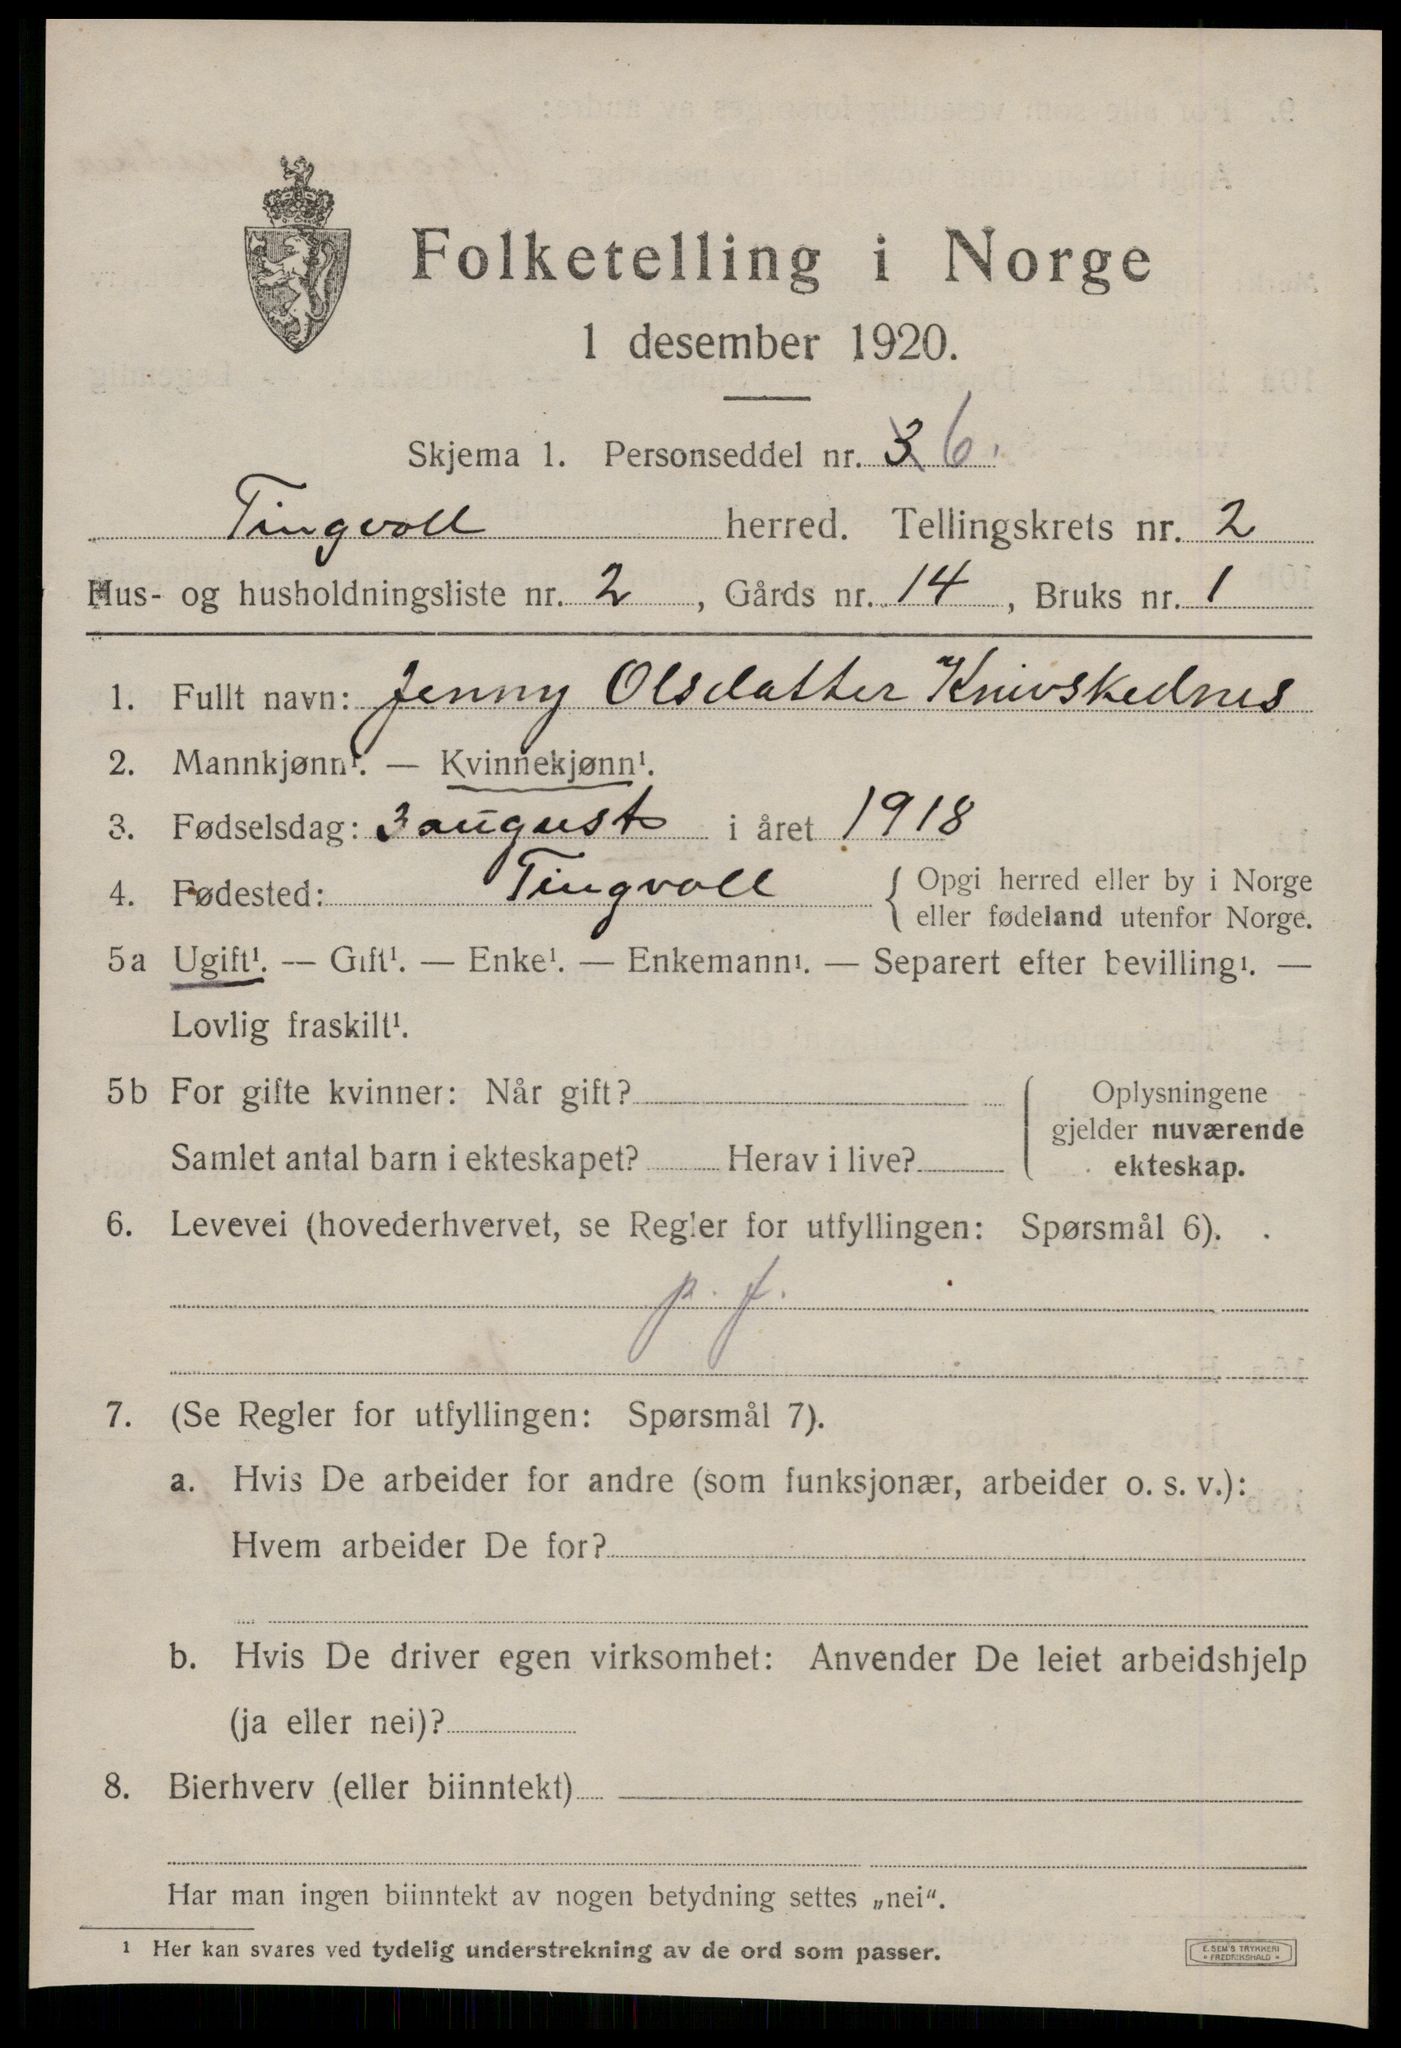 Folketelling i Norge
1 desember 1920.
Skjema 1. Personseddel nr. 3 6.
Tingvoll herred. Tellingskrets nr. 2
Hus- og husholdningsliste nr. 2, Gårds nr. 14, Bruks nr. 1
1. Fullt navn: Jenny Olsdatter Knivskednes
2. Mannkjønn¹. — Kvinnekjønn¹.
3. Fødselsdag: 3 august i året 1918
4. Fødested: Tingvoll { Opgi herred eller by i Norge
eller fødeland utenfor Norge.
5a Ugift¹. — Gift¹. — Enke¹. — Enkemann¹. — Separert efter bevilling¹. —
Lovlig fraskilt¹.
5b For gifte kvinner: Når gift?
Samlet antal barn i ekteskapet? Herav i live?
Oplysningene
gjelder nuværende
ekteskap.
6. Levevei (hovederhvervet, se Regler for utfyllingen: Spørsmål 6).
p. f.
7. (Se Regler for utfyllingen: Spørsmål 7).
a. Hvis De arbeider for andre (som funksjonær, arbeider o. s. v.):
Hvem arbeider De for?
b. Hvis De driver egen virksomhet: Anvender De leiet arbeidshjelp
(ja eller nei)?
8. Bierhverv (eller biinntekt)
Har man ingen biinntekt av nogen betydning settes „nei“.
¹ Her kan svares ved tydelig understrekning av de ord som passer.
E. SEM'S TRYKKERI
* FREDRIKSHALD *